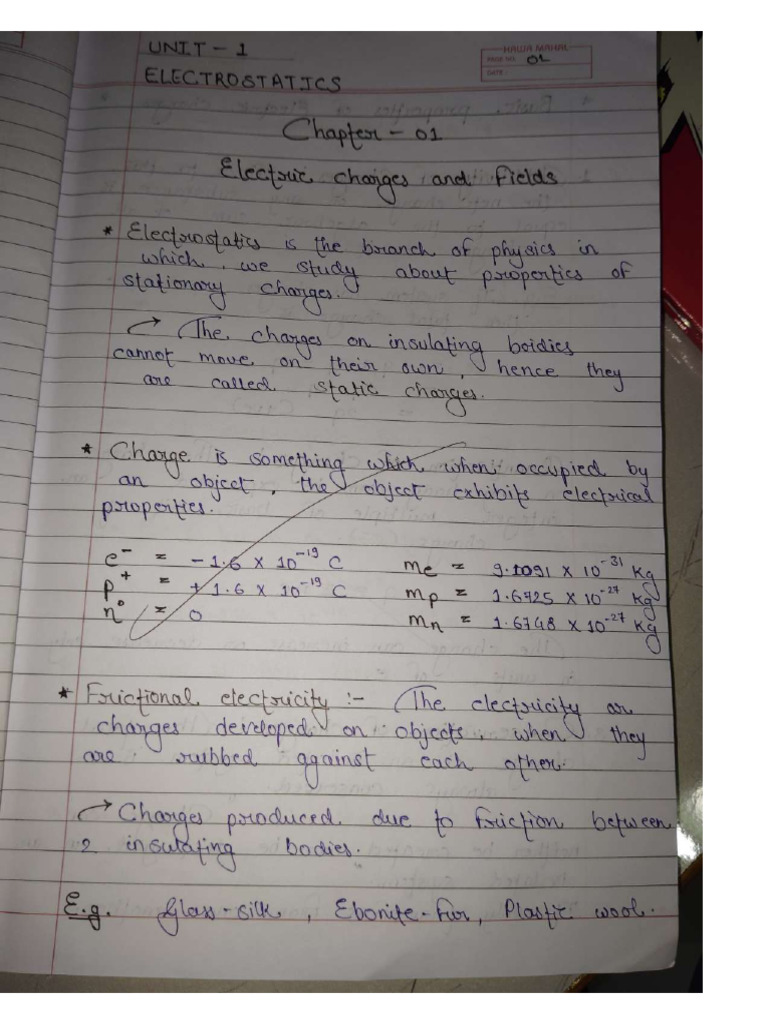 UNIT - 1
HAWA MAHAL
PAGE NO. 01
DATE:
ELECTROSTATICS
Chapter - 01
Electric charges and Fields
* Electrostatics is the branch of physics in
which, we study about properties of
stationary charges.
→ The charges on insulating boidies
cannot move on their own, hence they
are called static charges.
* Charge is something which when occupied by
an object, the object exhibits electrical
properties.
e⁻ = - 1.6 × 10⁻¹⁹ C me = 9.1091 × 10⁻³¹ Kg
p⁺ = + 1.6 × 10⁻¹⁹ C mp = 1.6725 × 10⁻²⁷ Kg
n⁰ = 0 mn = 1.6748 × 10⁻²⁷ Kg
* Frictional electricity :- The electricity or
charges developed on objects, when they
are rubbed against each other.
→ Charges produced due to friction between
2 insulating bodies.
E.g. Glass-silk, Ebonite-fur, Plastic wool.